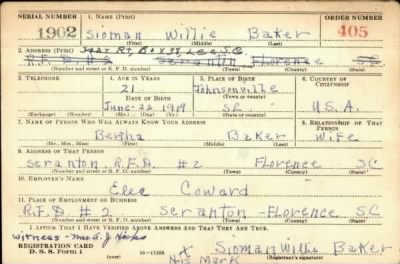 SERIAL NUMBER 1. NAME (Print) ORDER NUMBER
1902 Sidman Willie Baker 405
(First) (Middle) (Last)
2. ADDRESS (Print)
R.F.D. #2 Scranton Florence SC
(Number and street or R. F. D. number) (Town) (County) (State)
3. TELEPHONE 4. AGE IN YEARS 5. PLACE OF BIRTH 6. COUNTRY OF CITIZENSHIP
21 Johnsonville
DATE OF BIRTH (Town or county)
June-22 1919 SC U.S.A.
(Exchange) (Number) (Mo.) (Day) (Yr.) (State or country)
7. NAME OF PERSON WHO WILL ALWAYS KNOW YOUR ADDRESS 8. RELATIONSHIP OF THAT PERSON
Bertha Baker Wife
(Mr., Mrs., Miss) (First) (Middle) (Last)
9. ADDRESS OF THAT PERSON
Scranton R.F.D. #2 Florence SC
(Number and street or R. F. D. number) (Town) (County) (State)
10. EMPLOYER'S NAME
Elee Coward
11. PLACE OF EMPLOYMENT OR BUSINESS
R.F.D #2 Scranton - Florence S.C
(Number and street or R. F. D. number) (Town) (County) (State)
I AFFIRM THAT I HAVE VERIFIED ABOVE ANSWERS AND THAT THEY ARE TRUE.
Witness - Mrs. J.
REGISTRATION CARD X Sidman Willie Baker
D. S. S. Form 1 His Mark